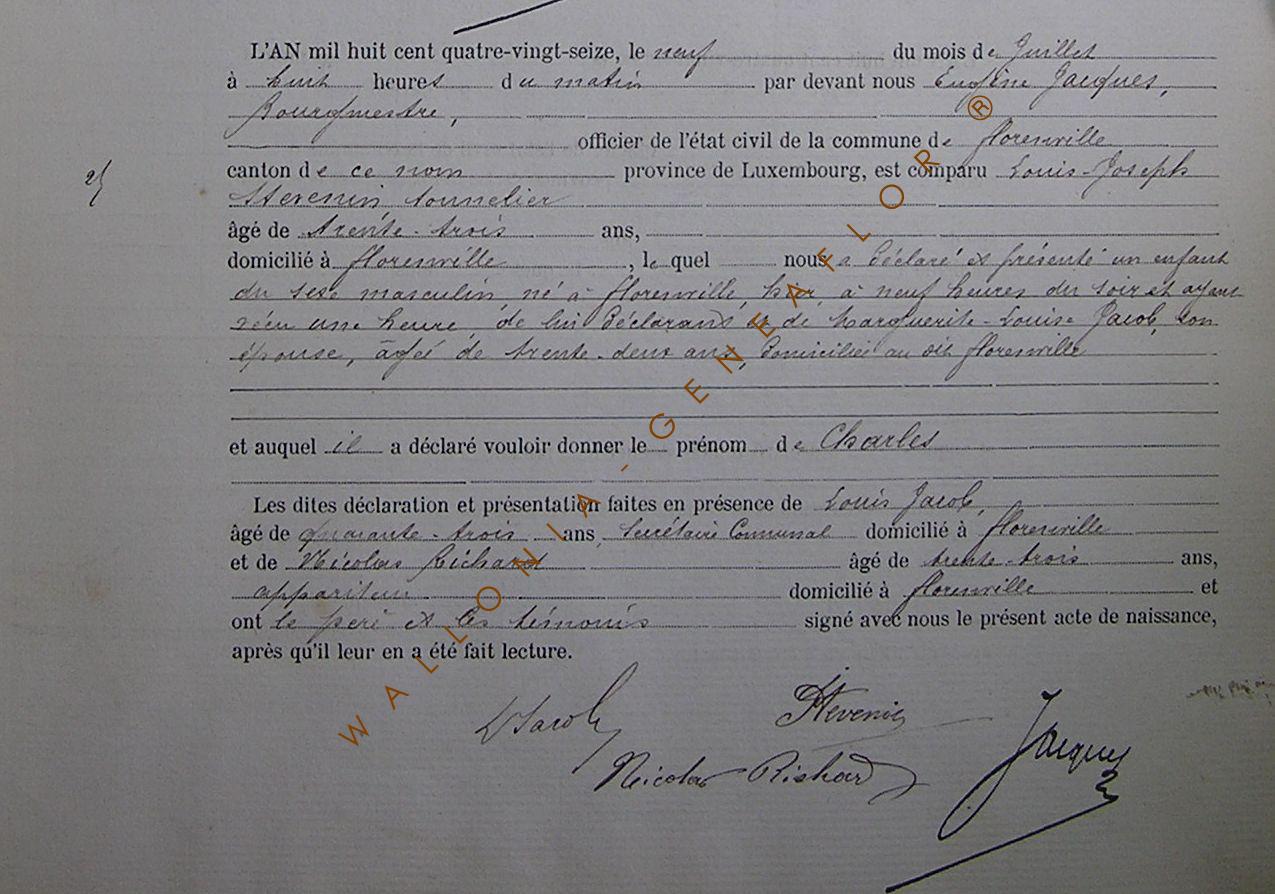 L'AN mil huit cent quatre-vingt-seize, le neuf du mois de Juillet
à huit heures du matin par devant nous Eugène Jacques,
Bourgmestre,
officier de l'état civil de la commune de florenville
canton de ce nom province de Luxembourg, est comparu Louis-Joseph
Stevenin tonnelier
âgé de trente-trois ans,
domicilié à florenville, le quel nous a déclaré et présenté un enfant
du sexe masculin, né à florenville, hier, à neuf heures du soir et ayant
vécu une heure, de lui déclarant et de Marguerite-Louise Jacob, son
épouse, âgée de trente-deux ans, domiciliée au dit florenville
et auquel il a déclaré vouloir donner le prénom de Charles
Les dites déclaration et présentation faites en présence de Louis Jacob,
âgé de quarante-trois ans, Secrétaire Communal domicilié à florenville
et de Nicolas Richard âgé de trente-trois ans,
appariteur domicilié à florenville et
ont le père et les témoins signé avec nous le présent acte de naissance,
après qu'il leur en a été fait lecture.
LJacob Stevenin
Nicolas Richard Jacques
WALLONIA-GENEAFLOR®